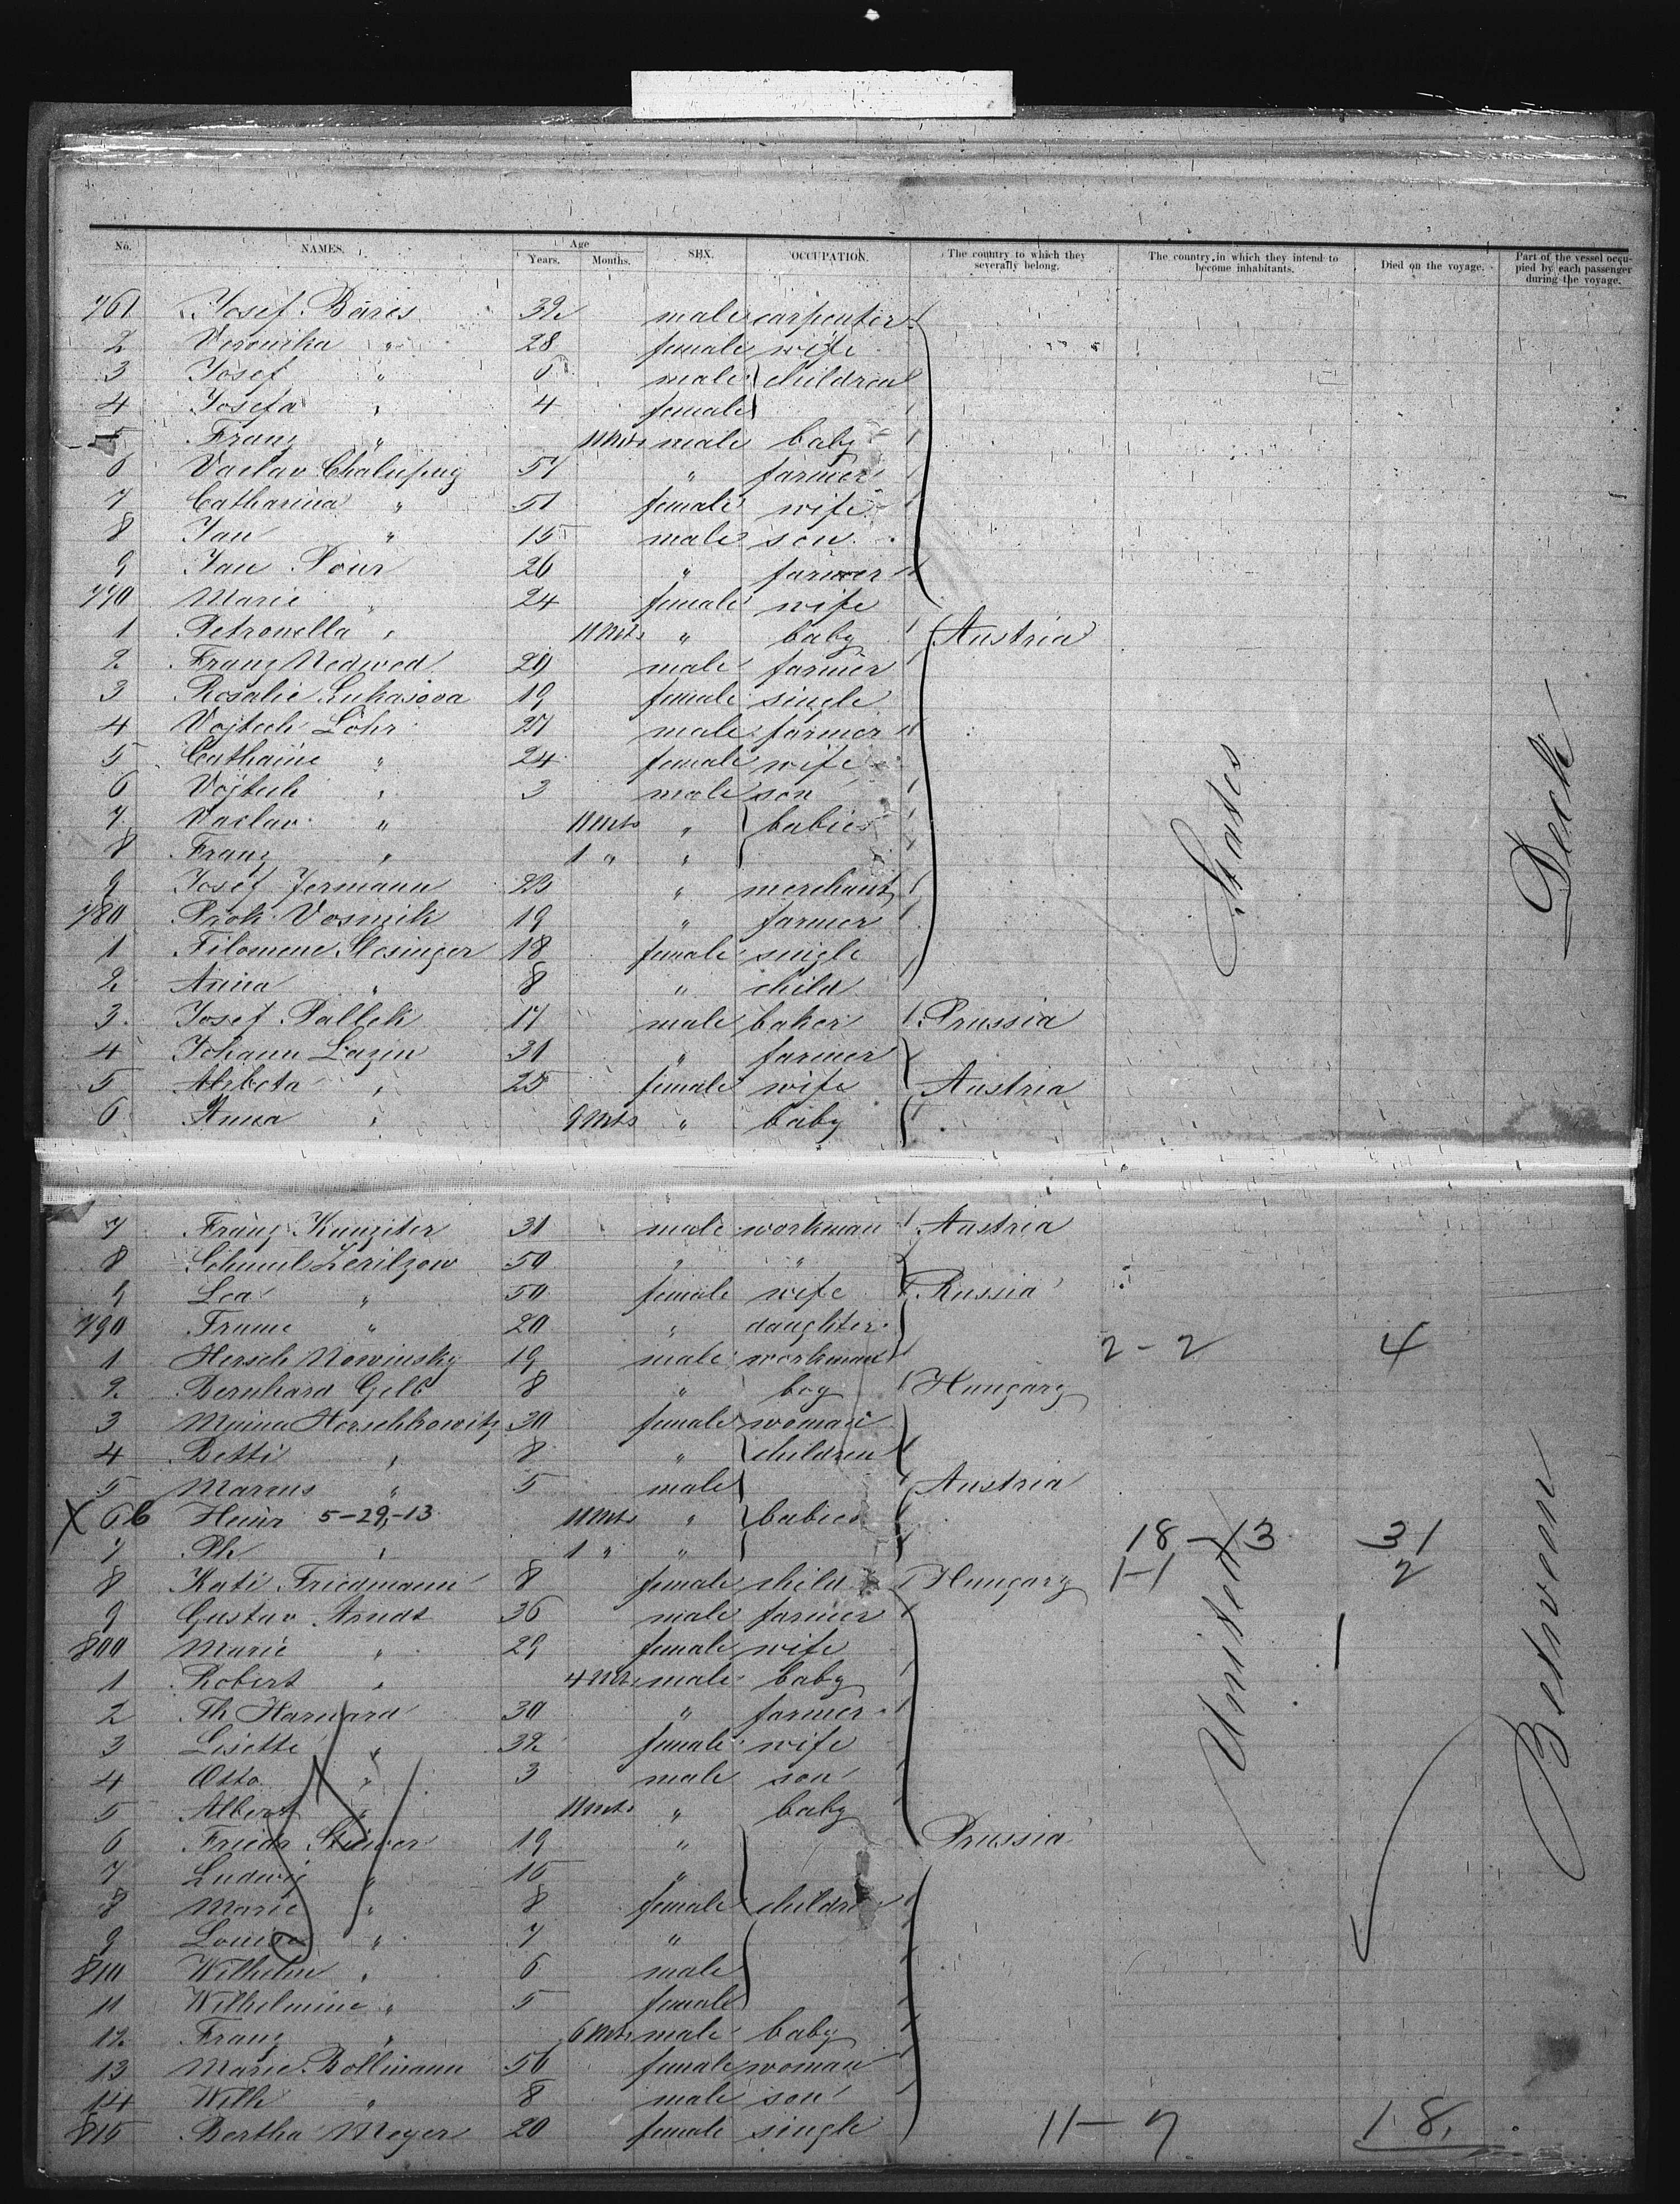 No. NAMES. Age Years. Months. SEX. OCCUPATION. The country to which they severally belong. The country in which they intend to become inhabitants. Died on the voyage. Part of the vessel occupied by each passenger during the voyage.
761 Josef Bares 32 male carpenter
2 Veronika " 28 female wife
3 Josef " 6 male children
4 Josefa " 4 female
5 Franz " 11 Mts male baby
6 Vaclav Chalupny 57 " farmer
7 Catharina " 51 female wife
8 Jan " 15 male son
9 Jan Pour 26 " farmer
770 Marie " 24 female wife
1 Petronella " 11 Mts " baby Austria
2 Franz Nedwed 29 male farmer
3 Rosalie Lukasova 19 female single
4 Vojtech Löhr 27 male farmer
5 Catharine " 24 female wife
6 Vojtech " 3 male son
7 Vaclav " 11 Mts " babies
8 Franz " 1 " "
9 Josef Jermann 23 " merchant
780 Prok. Vosmik 19 " farmer
1 Filomene Slesinger 18 female single
2 Anna " 8 " child
3 Josef Pallek 17 male baker Prussia
4 Johann Lazin 31 " farmer
5 Alzbeta " 25 female wife Austria
6 Anna " 9 Mts " baby
7 Franz Kunziter 31 male workman Austria
8 Schmul Zerilzow 50 " "
9 Lea " 50 female wife Russia
790 Frume " 20 " daughter
1 Hersch Nowinsky 19 male workman 2-2 4
2 Bernhard Gelb 8 " boy Hungary
3 Minna Herschkowitz 30 female woman
4 Betti " 8 " children
5 Marcus " 5 male Austria
X 6 6 Heinr 5-29-13 11 Mts " babies
7 Ph " 1 " " 18-13 31
8 Kati Friedmann 8 female child Hungary 1-1 2
9 Gustav Arndt 36 male farmer
800 Marie " 29 female wife
1 Robert " 4 Mts male baby
2 Th Harward 30 " farmer
3 Lisette " 32 female wife
4 Otto " 3 male son
5 Albert " 11 Mts " baby
6 Friedr Stüwer 19 " Prussia
7 Ludwig " 15 "
8 Marie " 8 female children
9 Louise " 7 "
810 Wilhelm " 6 male
11 Wilhelmine " 5 female
12 Franz " 6 Mts male baby
13 Marie Bollmann 56 female woman
14 Wilh " 8 male son
815 Bertha Meyer 20 female single 11-7 18
United States
Between Deck